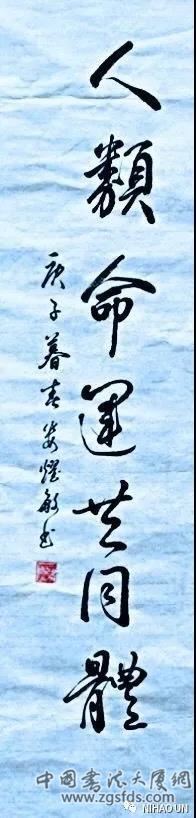 人類命運共同體
庚子暮春婁耀敏书
中国书法大厦网
www.zgsfds.com
NIHAOUN